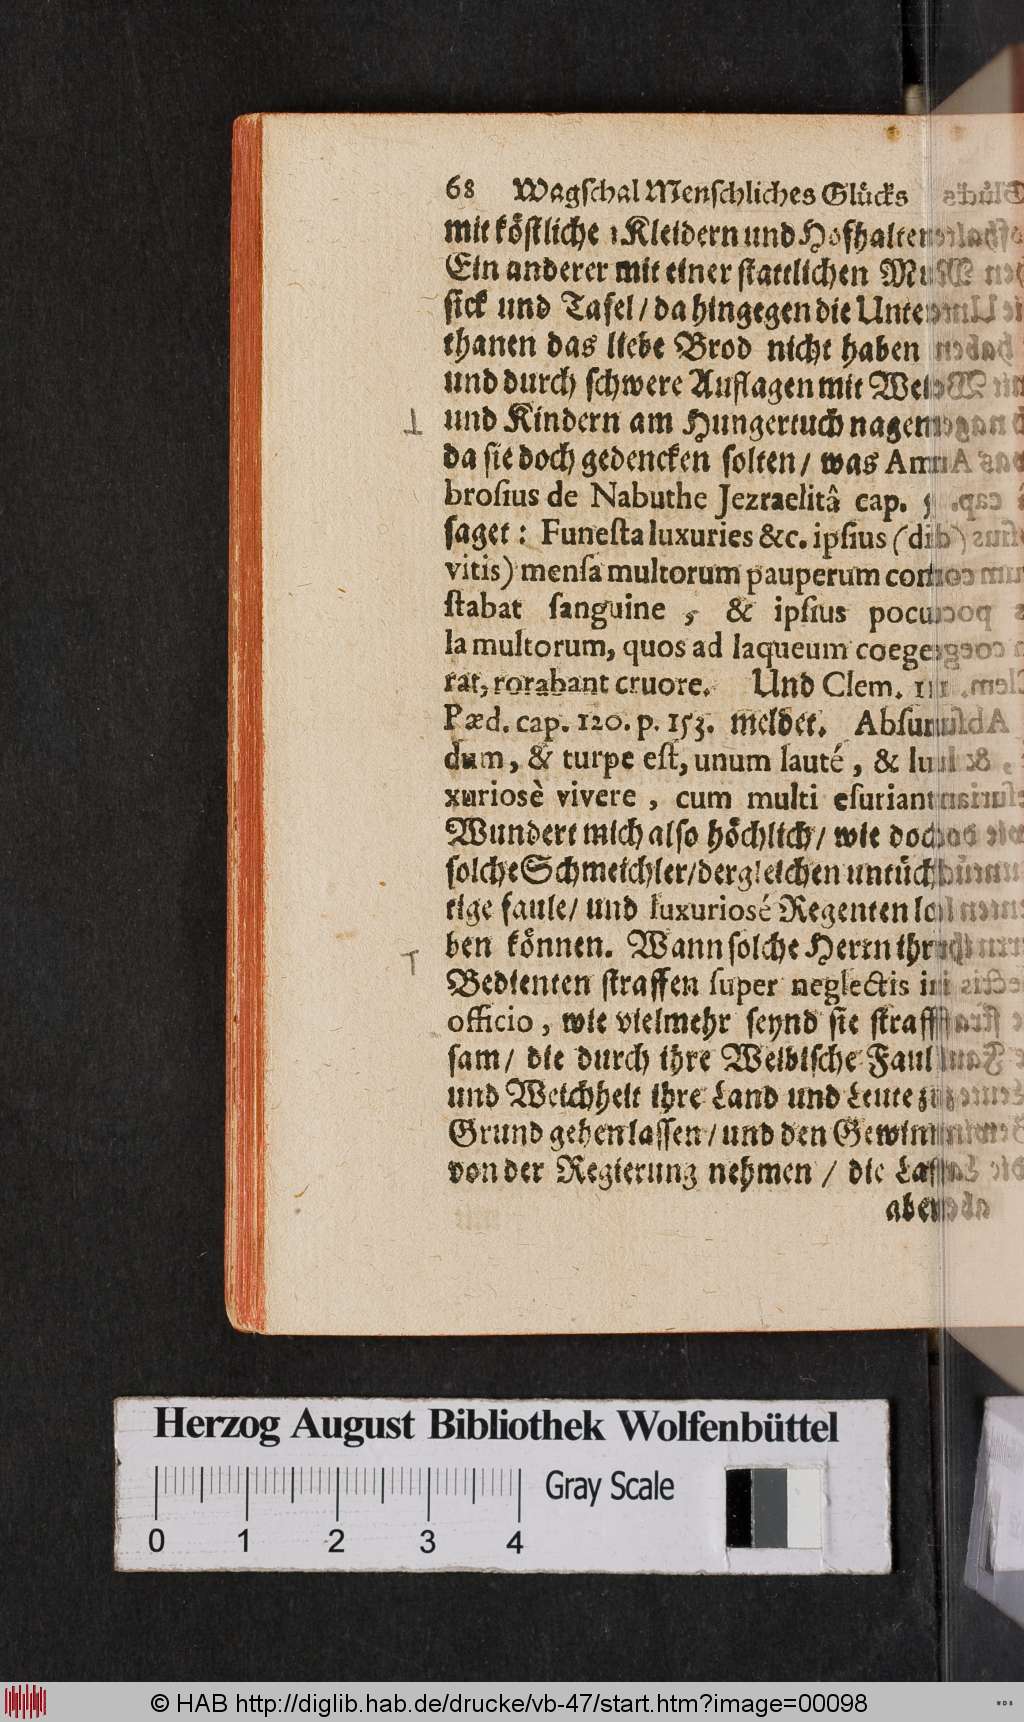 68 Wagſchal Menſchliches Glücks
mit köſtliche Kleidern und Hofhalten
Ein anderer mit einer ſtattlichen Mu
ſick und Tafel / da hingegen die Unter
thanen das liebe Brod nicht haben
und durch ſchwere Auflagen mit Weib
und Kindern am Hungertuch nagen
da ſie doch gedencken ſolten / was Am
broſius de Nabuthe Jezraelitâ cap. 5.
ſaget: Funeſta luxuries &c. ipſius (di
vitis) menſa multorum pauperum con
ſtabat ſanguine, & ipſius pocu
la multorum, quos ad laqueum coege
rat, rorabant cruore. Und Clem. III.
Pæd. cap. 120. p. 153. meldet. Abſur
dum, & turpe eſt, unum lauté, & lu
xuriosè vivere, cum multi eſuriant
Wundert mich alſo höchlich / wie doch
ſolche Schmeichler / dergleichen untüch
tige faule / und luxuriosé Regenten lo
ben können. Wann ſolche Herrn ihre
Bedienten ſtraffen ſuper neglectis in
officio, wie vielmehr ſeynd ſie ſtraff
ſam / die durch ihre Weibiſche Faul
und Weichheit ihre Land und Leute zu
Grund gehen laſſen / und den Gewinn
von der Regierung nehmen / die Laſt
aber
Herzog August Bibliothek Wolfenbüttel
Gray Scale
0 1 2 3 4
© HAB http://diglib.hab.de/drucke/vb-47/start.htm?image=00098
WDB